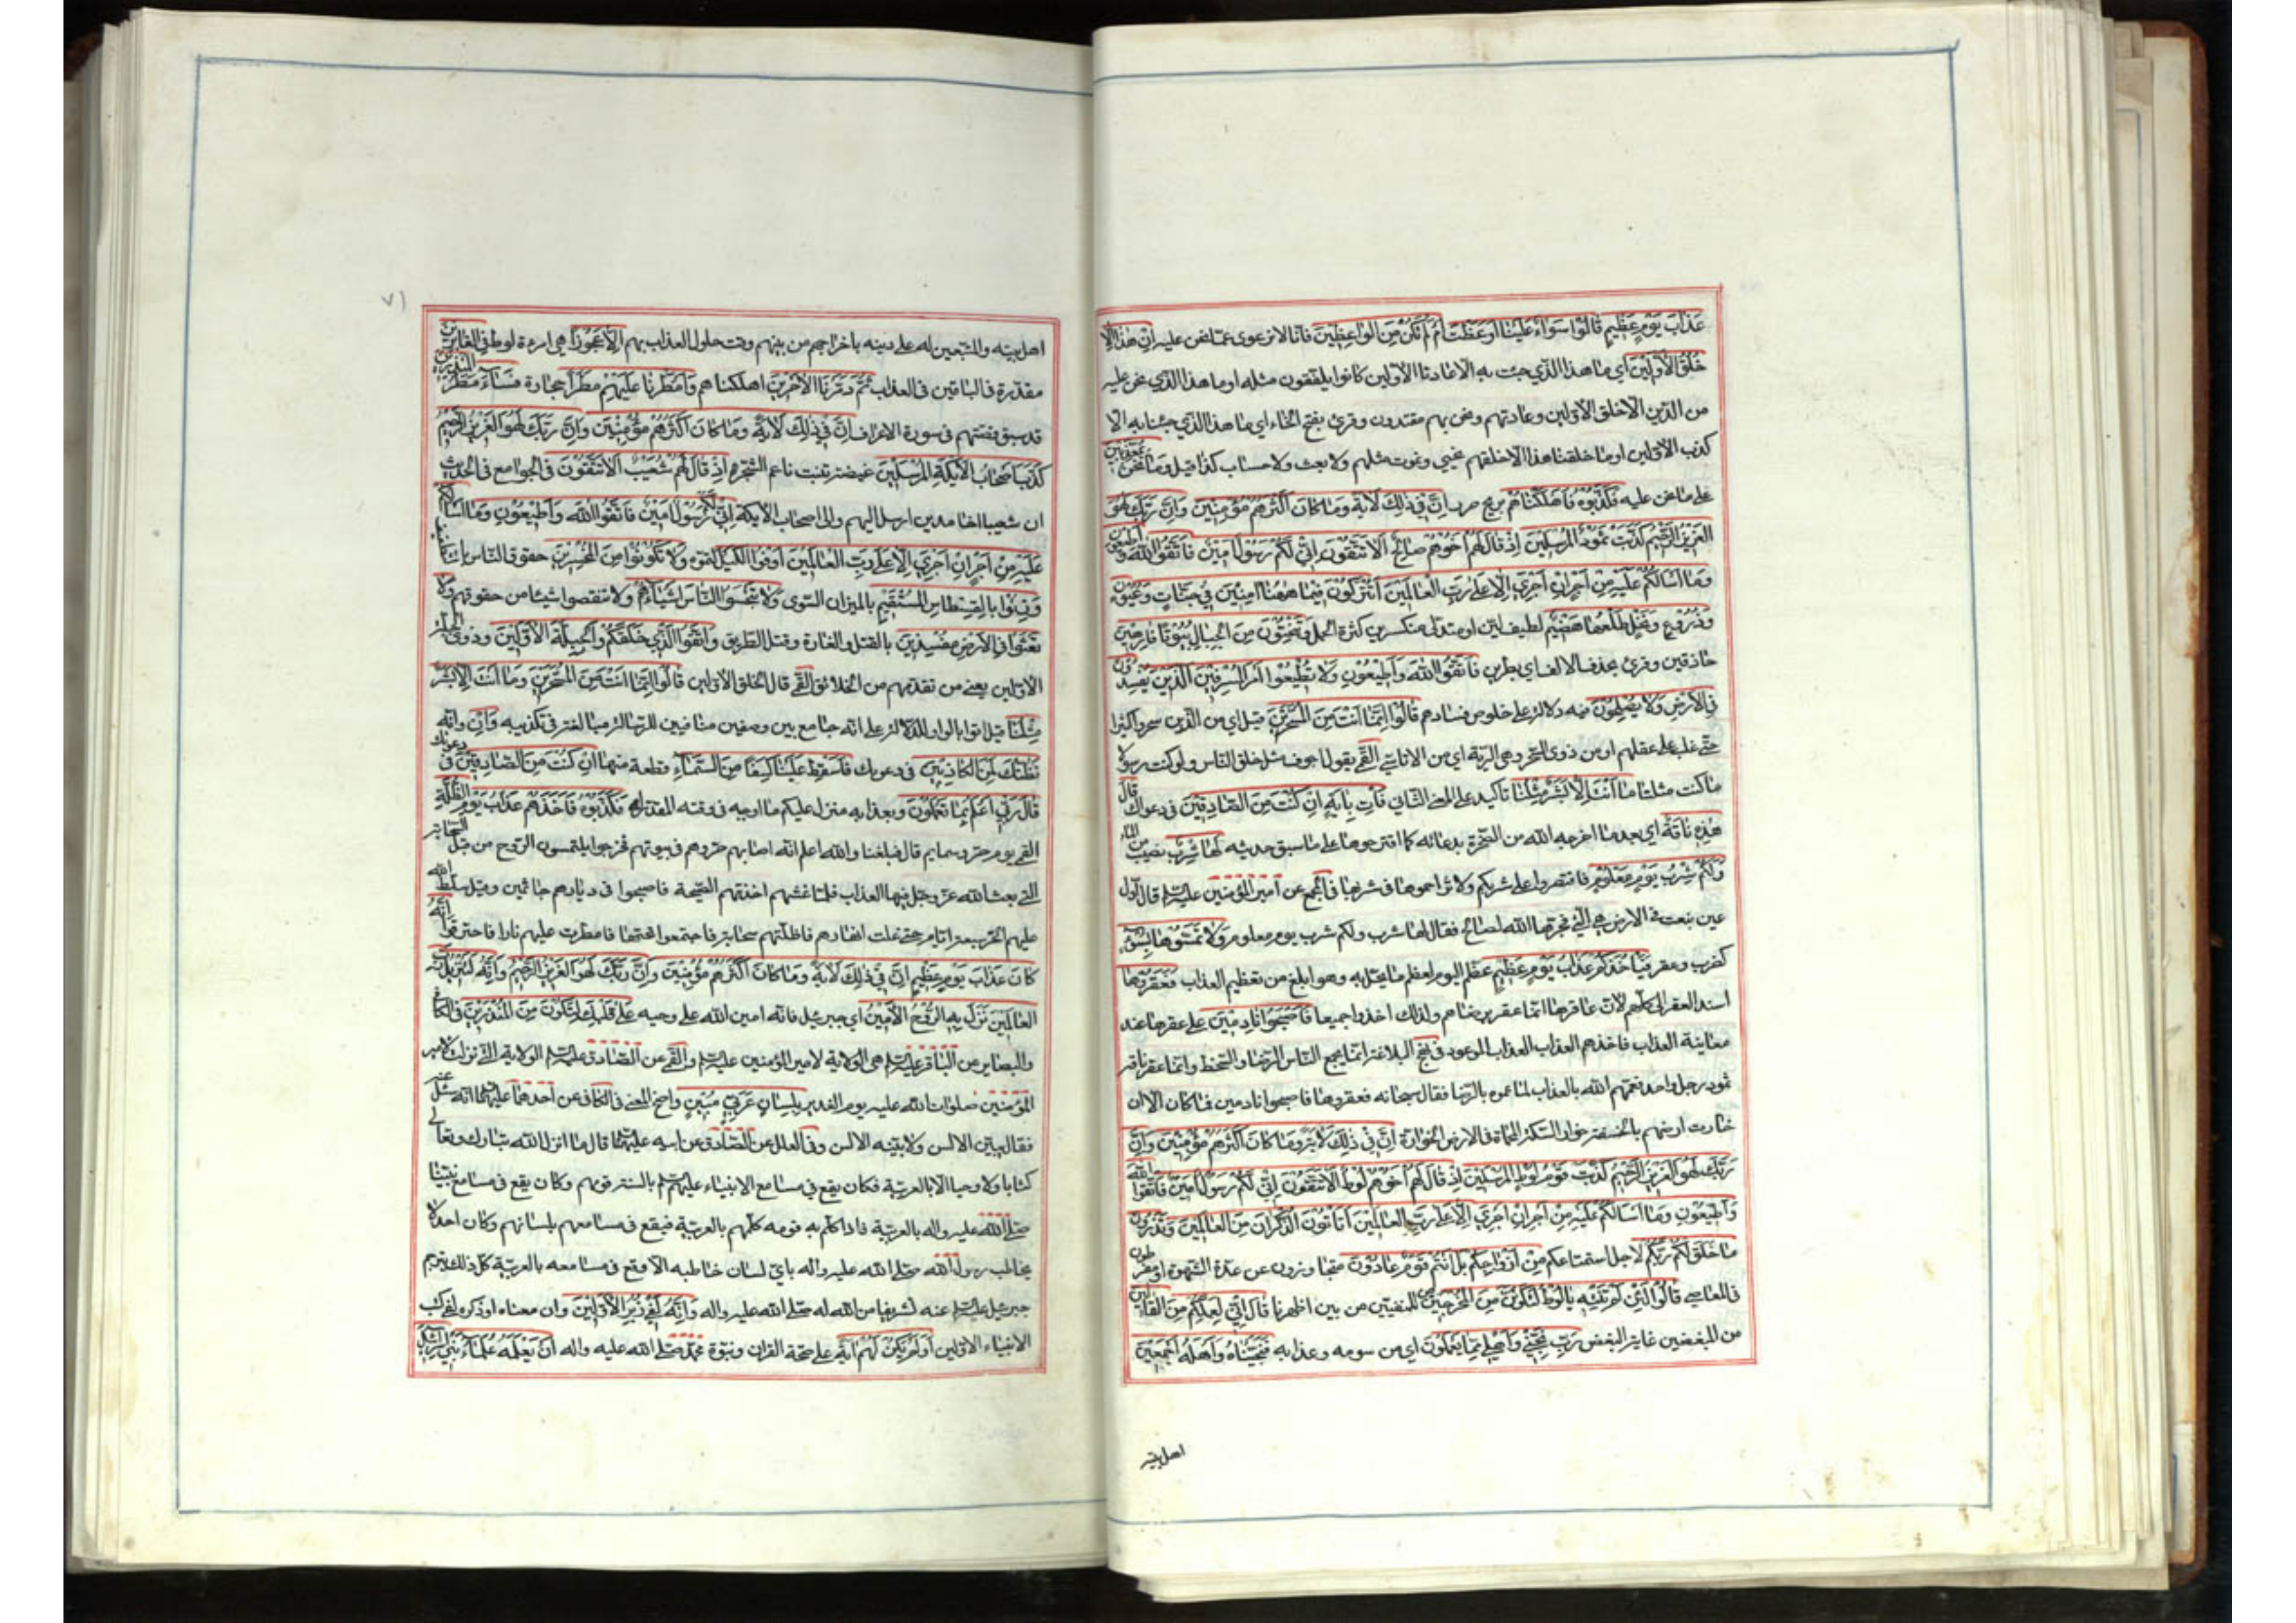 عَذابَ يَوْمٍ عَظيمٍ قالُوا سَواءٌ عَلَيْنا اَوَعَظْتَ اَمْ لَمْ تَكُنْ مِنَ الْواعِظينَ فانا لا نرعوى عما نحن عليه اِنْ هذا اِلّا
خُلُقُ الْاَوَّلينَ اى ما هذا الذى جئت به الا عادتنا الاولين كانوا يلفقون مثله او ما هذا الذى نحن عليه
من الدين الا خلق الاولين وعادتهم ونحن بهم مقتدون وقرئ بفتح الخاء اى ما هذا الذى جئتنا به الا
كذب الاولين او ما خلقنا هذا الا خلقهم نحيى ونموت مثلهم ولا بعث ولا حساب كذا قيل وَما نَحْنُ بِمُعَذَّبينَ
على ما نحن عليه فَكَذَّبُوهُ فَاَهْلَكْناهُمْ بريح صرصر اِنَّ فى ذلِكَ لَآيَةً وَما كانَ اَكْثَرُهُمْ مُؤْمِنينَ وَاِنَّ رَبَّكَ لَهُوَ
الْعَزيزُ الرَّحيمُ كَذَّبَتْ ثَمُودُ الْمُرْسَلينَ اِذْ قالَ لَهُمْ اَخُوهُمْ صالِحٌ اَلا تَتَّقُونَ اِنّى لَكُمْ رَسُولٌ اَمينٌ فَاتَّقُوا اللهَ وَ اَطيعُونِ
وَما اَسْاَلُكُمْ عَلَيْهِ مِنْ اَجْرٍ اِنْ اَجْرِىَ اِلّا عَلى رَبِّ الْعالَمينَ اَتُتْرَكُونَ فيما ههُنا آمِنينَ فى جَنّاتٍ وَعُيُونٍ
وَزُرُوعٍ وَنَخْلٍ طَلْعُها هَضيمٌ لطيف لين او متدلى منكسر من كثرة الحمل وَتَنْحِتُونَ مِنَ الْجِبالِ بُيُوتًا فارِهينَ
حاذقين وقرئ بحذف الالف اى بطرين فَاتَّقُوا اللهَ وَاَطيعُونِ وَلا تُطيعُوا اَمْرَ الْمُسْرِفينَ اَلَّذينَ يُفْسِدُونَ
فِى الْاَرْضِ وَلا يُصْلِحُونَ فيه دلالة على خلوص فسادهم قالُوا اِنَّما اَنْتَ مِنَ الْمُسَحَّرينَ قيل اى من الذين سحروا كثيرا
حتى غلب على عقلهم او من ذوى السحر وهى الرية اى من الاناسى القمى يقول اجوف مثل خلق الناس ولو كنت رسولا
ما كنت مثلنا ما اَنْتَ اِلّا بَشَرٌ مِثْلُنا تاكيد على المعنى الثانى فَأْتِ بِآيَةٍ اِنْ كُنْتَ مِنَ الصّادِقينَ فى دعواك قالَ
هذِهِ ناقَةٌ اى بعد ما اخرجها الله من الصخرة بدعائه كما اقترحوها على ما سبق حديثه لَها شِرْبٌ نصيب من الماء
وَلَكُمْ شِرْبُ يَوْمٍ مَعْلُومٍ فاقتصروا على شربكم ولا تزاحموها فى شربها فى المجمع عن امير المؤمنين عليه السلم قال اول
عين نبعت فى الارض هى التى فجرها الله لصالح فقال لها شرب ولكم شرب يوم معلوم وَلا تَمَسُّوها بِسُوءٍ
كضرب وعقر فَيَأْخُذَكُمْ عَذابُ يَوْمٍ عَظيمٍ عظم اليوم لعظم ما يحل به وهو ابلغ من تعظيم العذاب فَعَقَرُوها
اسند العقر الى كلهم لان عاقرها انما عقر برضاهم ولذلك اخذوا جميعا فَاَصْبَحُوا نادِمينَ على عقرها عند
معاينة العذاب فاخذهم العذاب العذاب الموعود فى نهج البلاغة انما يجمع الناس الرضا والسخط وانما عقر ناقة
ثمود رجل واحد فعمهم الله بالعذاب لما عموه بالرضا فقال سبحانه فعقروها فاصبحوا نادمين فما كان الا ان
خارت ارضهم بالخسفة خوار السكة المحماة فى الارض الخوارة اِنَّ فى ذلِكَ لَآيَةً وَما كانَ اَكْثَرُهُمْ مُؤْمِنينَ وَاِنَّ
رَبَّكَ لَهُوَ الْعَزيزُ الرَّحيمُ كَذَّبَتْ قَوْمُ لُوطٍ الْمُرْسَلينَ اِذْ قالَ لَهُمْ اَخُوهُمْ لُوطٌ اَلا تَتَّقُونَ اِنّى لَكُمْ رَسُولٌ اَمينٌ فَاتَّقُوا اللهَ
وَاَطيعُونِ وَما اَسْاَلُكُمْ عَلَيْهِ مِنْ اَجْرٍ اِنْ اَجْرِىَ اِلّا عَلى رَبِّ الْعالَمينَ اَتَأْتُونَ الذُّكْرانَ مِنَ الْعالَمينَ وَتَذَرُونَ
ما خَلَقَ لَكُمْ رَبُّكُمْ لاجل استمتاعكم مِنْ اَزْواجِكُمْ بَلْ اَنْتُمْ قَوْمٌ عادُونَ متجاوزون عن حد الشهوة او مفرطون
فى المعاصى قالُوا لَئِنْ لَمْ تَنْتَهِ يا لُوطُ لَتَكُونَنَّ مِنَ الْمُخْرَجينَ من المنفيين من بين اظهرنا قالَ اِنّى لِعَمَلِكُمْ مِنَ الْقالينَ
من المبغضين غاية البغض رَبِّ نَجِّنى وَاَهْلى مِمّا يَعْمَلُونَ اى من شومه وعذابه فَنَجَّيْناهُ وَاَهْلَهُ اَجْمَعينَ
اهل بيته
٧١
اهل بيته والمتبعين له على دينه باخراجهم من بينهم وقت حلول العذاب بهم اِلّا عَجُوزًا هى امرءة لوط فِى الْغابِرينَ
مقدرة فى الباقين فى العذاب ثُمَّ دَمَّرْنَا الْآخَرينَ اهلكناهم وَاَمْطَرْنا عَلَيْهِمْ مَطَرًا حجارة فَساءَ مَطَرُ الْمُنْذَرينَ
قد سبق قصتهم فى سورة الاعراف اِنَّ فى ذلِكَ لَآيَةً وَما كانَ اَكْثَرُهُمْ مُؤْمِنينَ وَاِنَّ رَبَّكَ لَهُوَ الْعَزيزُ الرَّحيمُ
كَذَّبَ اَصْحابُ الْاَيْكَةِ الْمُرْسَلينَ غيضة تنبت ناعم الشجر اِذْ قالَ لَهُمْ شُعَيْبٌ اَلا تَتَّقُونَ فى الجوامع فى الحديث
ان شعيبا اخا مدين ارسل اليهم والى اصحاب الايكة اِنّى لَكُمْ رَسُولٌ اَمينٌ فَاتَّقُوا اللهَ وَاَطيعُونِ وَما اَسْاَلُكُمْ
عَلَيْهِ مِنْ اَجْرٍ اِنْ اَجْرِىَ اِلّا عَلى رَبِّ الْعالَمينَ اَوْفُوا الْكَيْلَ اتموه وَلا تَكُونُوا مِنَ الْمُخْسِرينَ حقوق الناس بالتطفيف
وَزِنُوا بِالْقِسْطاسِ الْمُسْتَقيمِ بالميزان السوى وَلا تَبْخَسُوا النّاسَ اَشْياءَهُمْ ولا تنقصوا شيئا من حقوقهم وَلا
تَعْثَوْا فِى الْاَرْضِ مُفْسِدينَ بالقتل والغارة وقطع الطريق وَاتَّقُوا الَّذى خَلَقَكُمْ وَالْجِبِلَّةَ الْاَوَّلينَ وذوى الجبلة
الاولين يعنى من تقدمهم من الخلائق القمى قال الخلق الاولين قالُوا اِنَّما اَنْتَ مِنَ الْمُسَحَّرينَ وَما اَنْتَ اِلّا بَشَرٌ
مِثْلُنا قيل اتوا بالواو للدلالة على انه جامع بين وصفين منافيين للرسالة مبالغة فى تكذيبه وَاِنْ وانه
نَظُنُّكَ لَمِنَ الْكاذِبينَ فى دعويك فَاَسْقِطْ عَلَيْنا كِسَفًا مِنَ السَّماءِ قطعة منها اِنْ كُنْتَ مِنَ الصّادِقينَ فى دعويك
قالَ رَبّى اَعْلَمُ بِما تَعْمَلُونَ وبعذابه منزل عليكم ما اوجبه فى وقته المقدر له فَكَذَّبُوهُ فَاَخَذَهُمْ عَذابُ يَوْمِ الظُّلَّةِ
القمى يوم حر وسمايم قال فبلغنا والله اعلم انه اصابهم حر وهم فى بيوتهم فخرجوا يلتمسون الروح من قبل السحابة
التى بعث الله عز وجل فيها العذاب فلما غشيهم اخذتهم الصيحة فاصبحوا فى ديارهم جاثمين وقيل سلط الله
عليهم الحر سبعة ايام حتى غلت انهارهم فاظلتهم سحابة فاجتمعوا تحتها فامطرت عليهم نارا فاحترقوا اِنَّهُ
كانَ عَذابَ يَوْمٍ عَظيمٍ اِنَّ فى ذلِكَ لَآيَةً وَما كانَ اَكْثَرُهُمْ مُؤْمِنينَ وَاِنَّ رَبَّكَ لَهُوَ الْعَزيزُ الرَّحيمُ وَاِنَّهُ لَتَنْزيلُ رَبِّ
الْعالَمينَ نَزَلَ بِهِ الرُّوحُ الْاَمينُ اى جبرئيل فانه امين الله على وحيه عَلى قَلْبِكَ لِتَكُونَ مِنَ الْمُنْذِرينَ فى الكافى
والبصاير عن الباقر عليه السلم هى الولاية لامير المؤمنين عليه السلم والقمى عن الصادق عليه السلم الولاية التى نزلت لامير
المؤمنين صلوات الله عليه يوم الغدير بِلِسانٍ عَرَبِىٍّ مُبينٍ واضح المعنى فى الكافى عن احدهما عليهما السلم انه سئل عنه
فقال يبين الالسن ولا تبينه الالسن وفى العلل عن الصادق عن ابيه عليهما السلم قال ما انزل الله تبارك وتعالى
كتابا ولا وحيا الا بالعربية فكان يقع فى مسامع الانبياء عليهم السلم بالسنة قومهم وكان يقع فى مسامع نبينا
صلى الله عليه واله بالعربية فاذا كلم به قومه كلمهم بالعربية فيقع فى مسامعهم بلسانهم وكان احد لا
يخاطب رسول الله صلى الله عليه واله باى لسان خاطبه الا وقع فى مسامعه بالعربية كل ذلك يترجم
جبرئيل عليه السلم عنه تشريفا من الله له صلى الله عليه واله وَاِنَّهُ لَفى زُبُرِ الْاَوَّلينَ وان معناه او ذكره لفى كتب
الانبياء الاولين اَوَلَمْ يَكُنْ لَهُمْ آيَةً على صحة القران ونبوة محمد صلى الله عليه واله اَنْ يَعْلَمَهُ عُلَماءُ بَنى اِسْرائيلَ